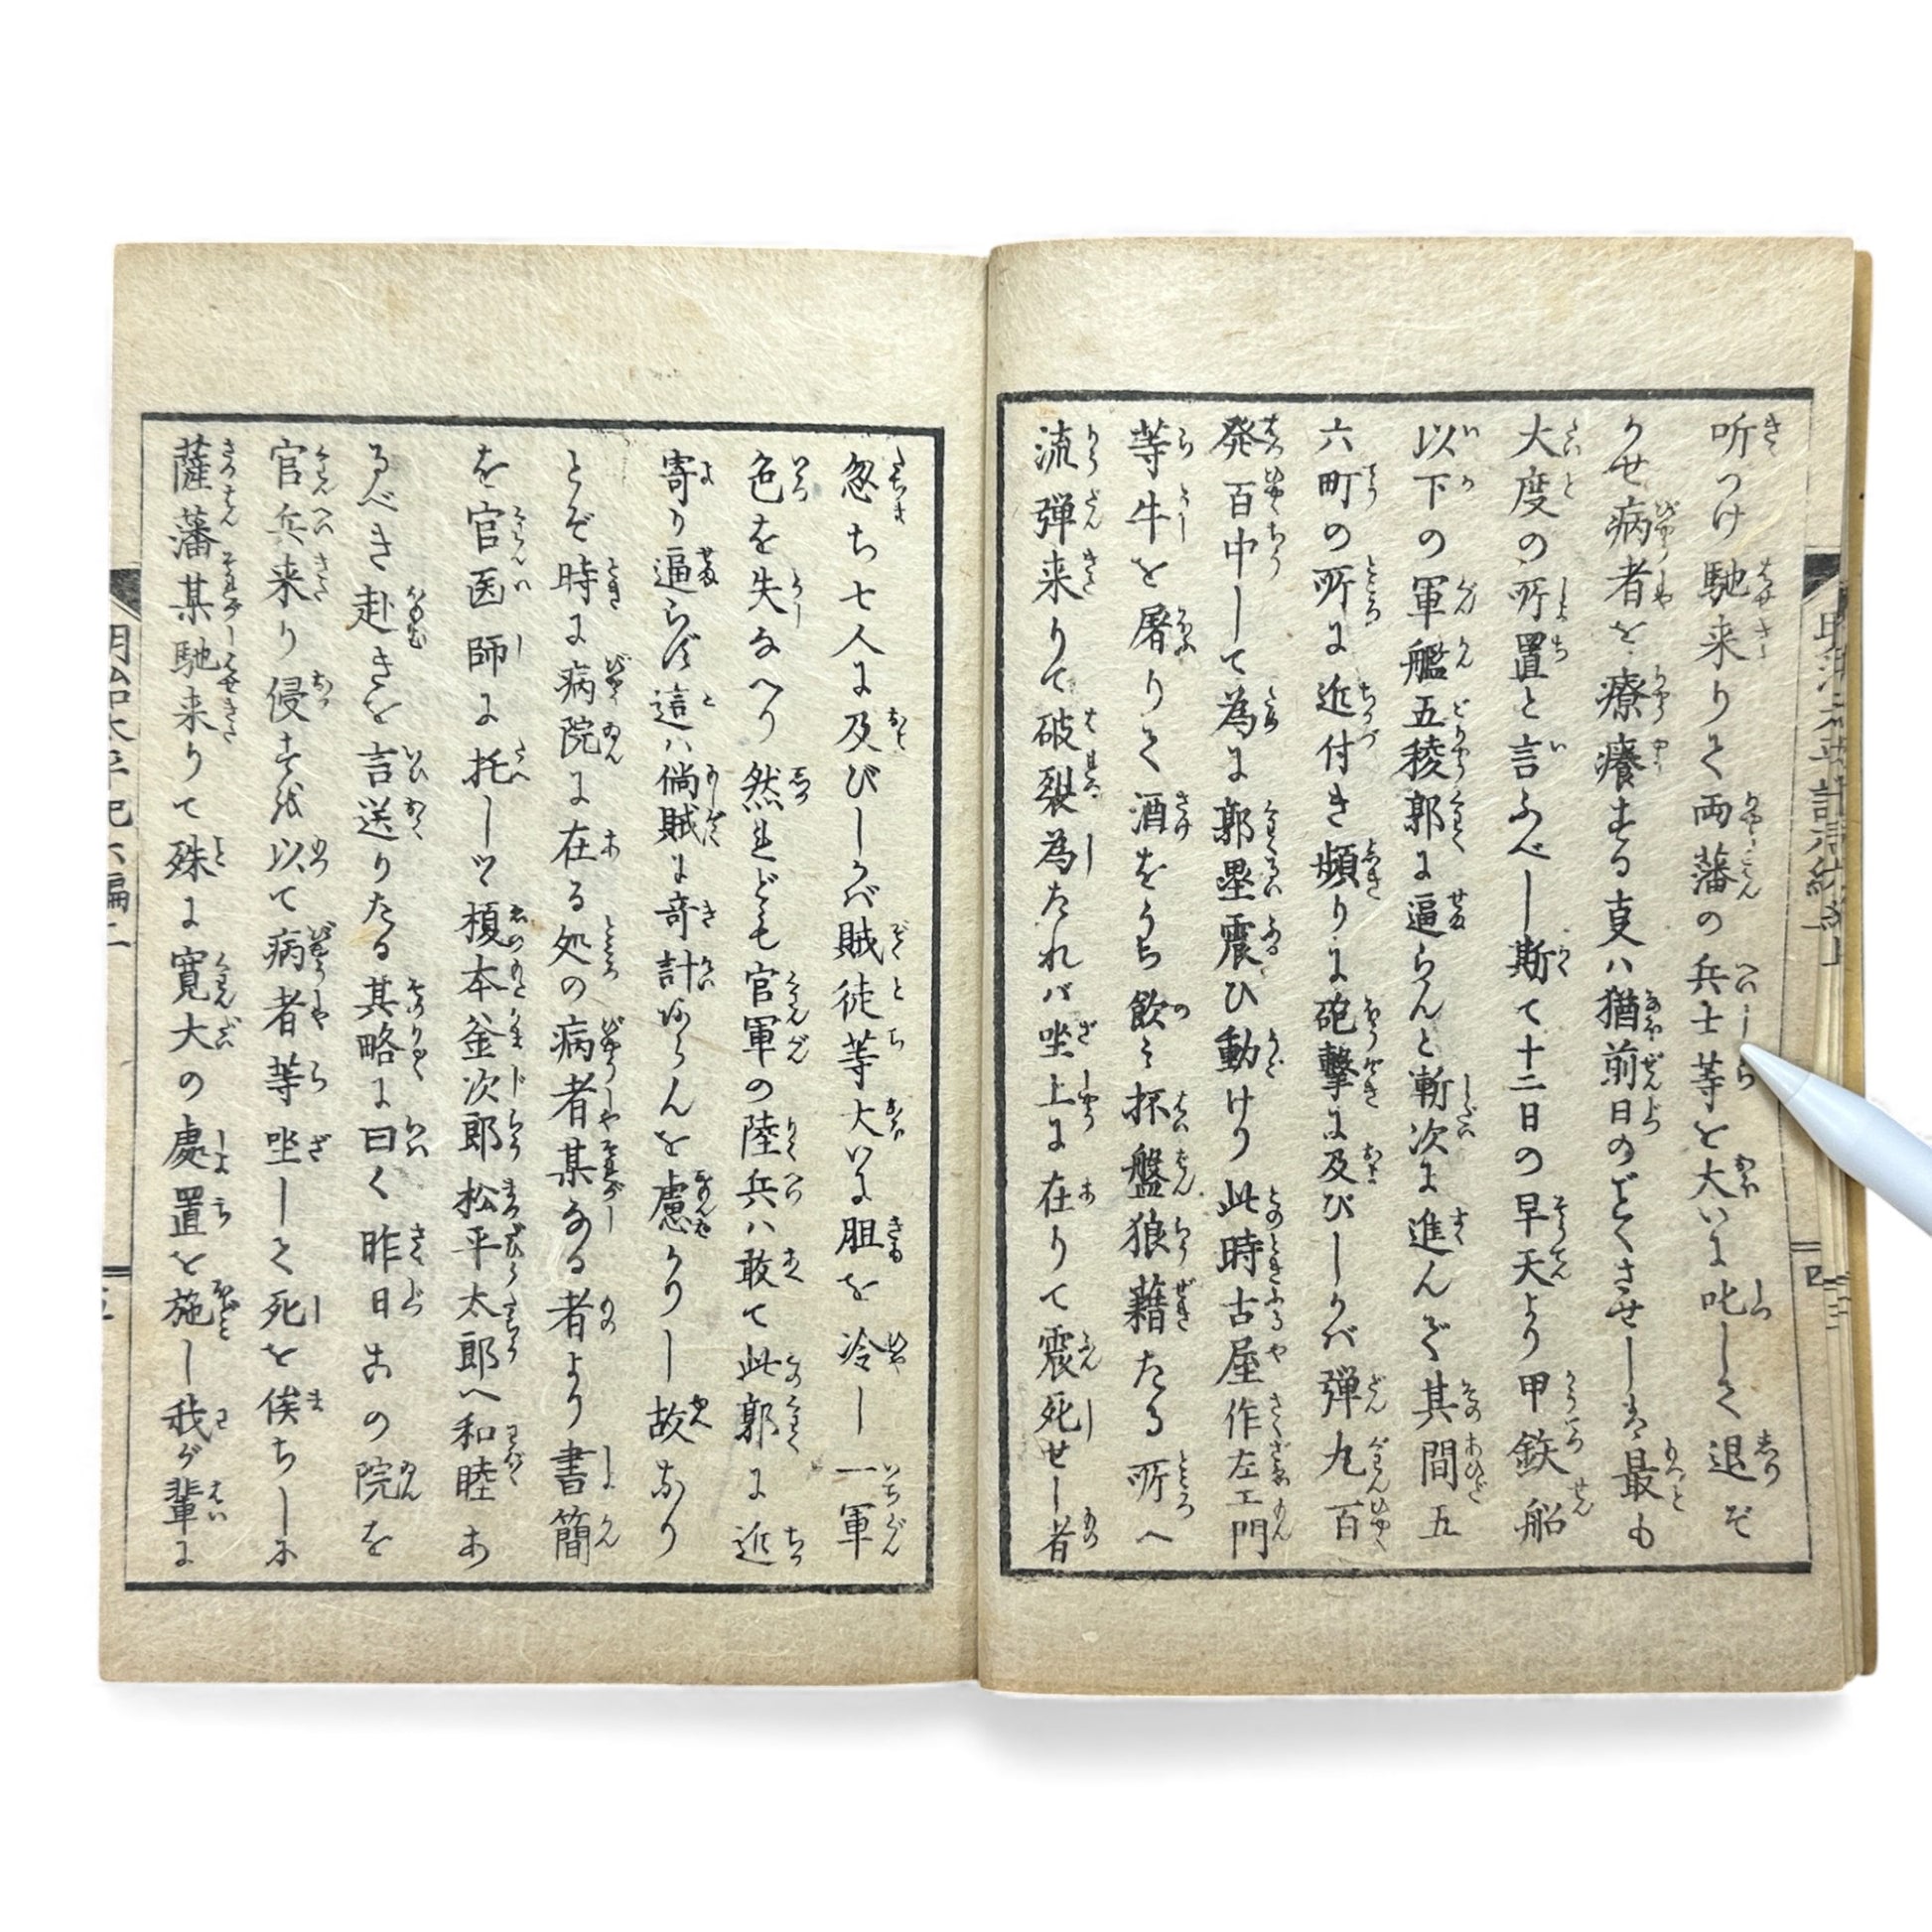 听つけ馳来りて両藩の兵士等を大いに叱して退ぞ
かせ病者を療養する叓ハ猶前日のごとくさせしは最も
大度の所置と言ふべし斯て十二日の早天より甲鉄船
以下の軍艦五稜郭に逼らんと漸次に進んで其間五
六町の所に近付き頻りに砲撃に及びしかバ弾丸百
発百中して為に郭塁震ひ動けり此時古屋作左エ門
等牛を屠りて酒をうち飲ミ杯盤狼藉たる所へ
流弾来りて破裂為たれバ坐上に在りて震死せし者
忽ち七人に及びしかバ賊徒等大いに胆を冷し一軍
色を失なへり然れども官軍の陸兵ハ敢て此郭に近
寄り逼らず這ハ倘賊に奇計あらんを慮かりし故なり
とぞ時に病院に在る処の病者某なる者より書簡
を官医師に托しツ榎本釜次郎松平太郎へ和睦あ
るべき赴きを言送りたる其略に曰く昨日あの院を
官兵来り侵す以て病者等坐して死を俟ちしに
薩藩某馳来りて殊に寛大の處置を施し我が輩に
明治太平記六編二
五
四